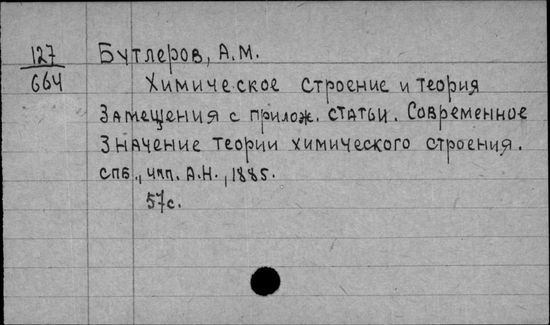 127
664
Бутлеров, А.М.
Химическое строение и теория
замещения с прилож. статьи. Современное
значение теории химического строения.
СПб., имп. А.Н., 1885.
57с.